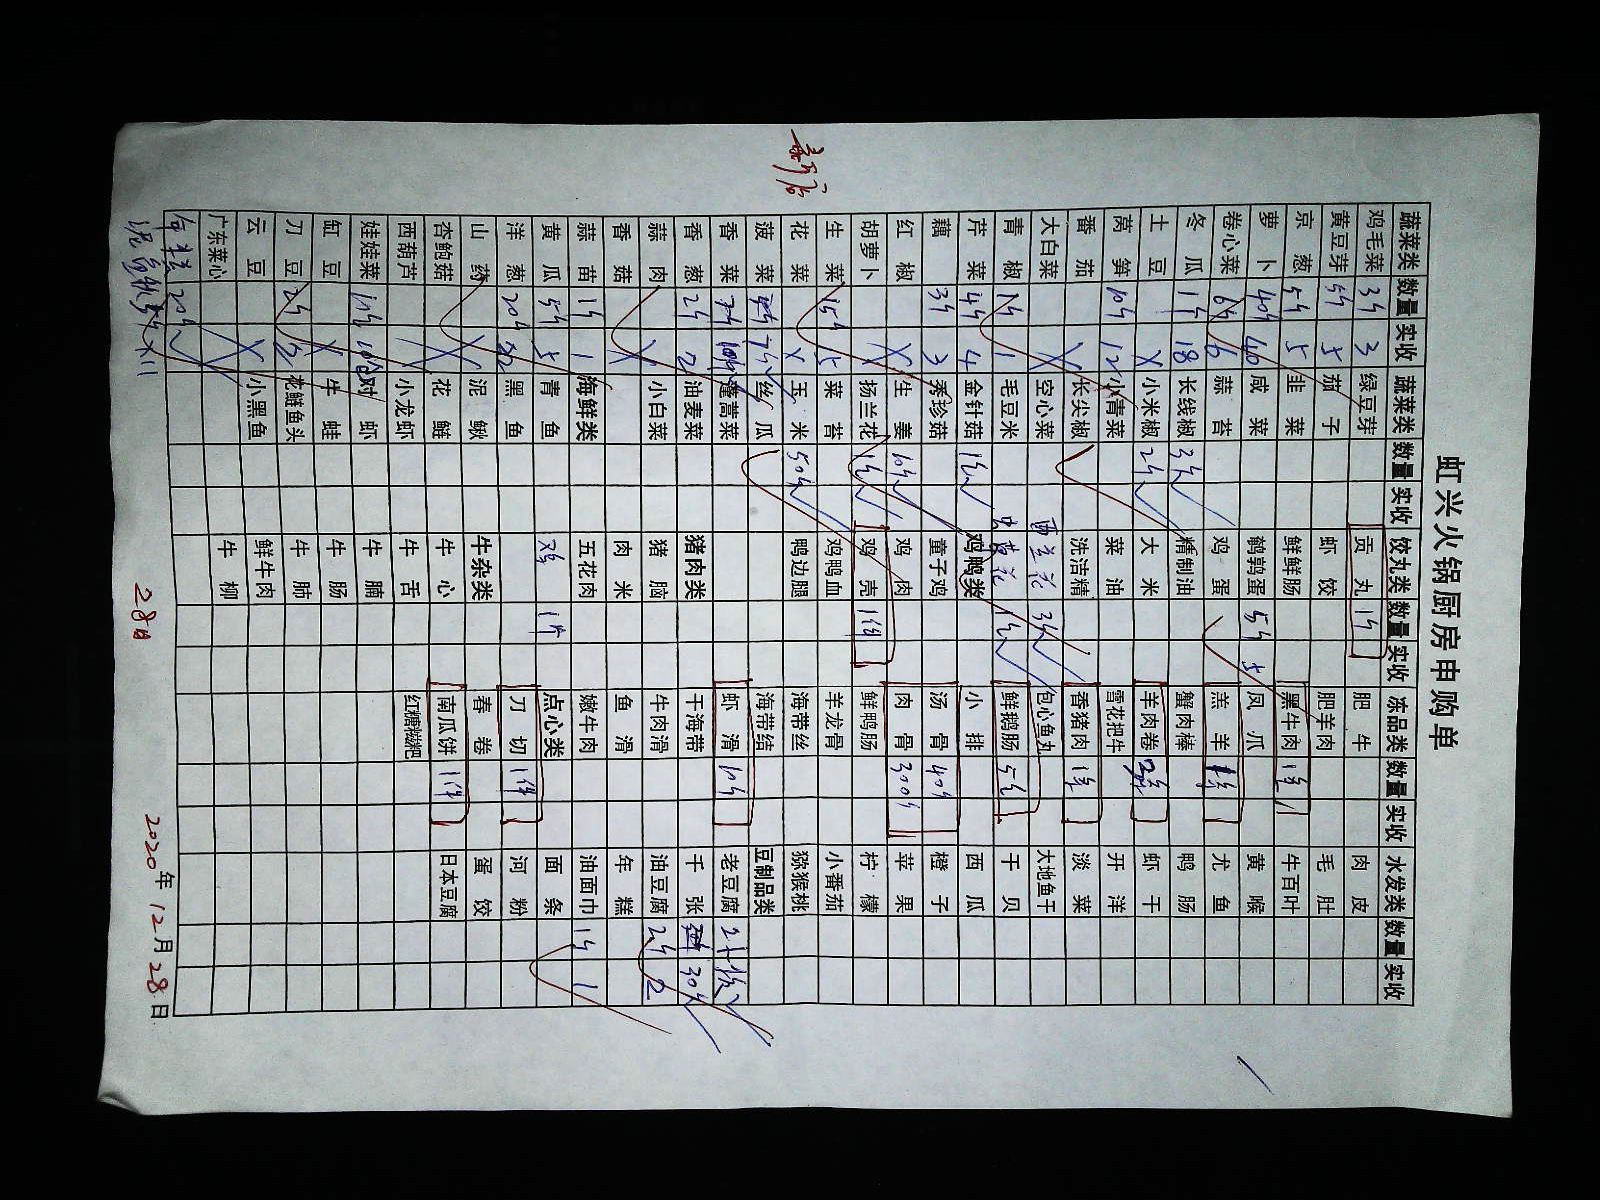 虹兴火锅厨房申购单
新店
蔬菜类 数量 实收 蔬菜类 数量 实收 饺丸类 数量 实收 冻品类 数量 实收 水发类 数量 实收
鸡毛菜 3斤 3 绿豆芽 贡丸 1斤 肥牛 肉皮
黄豆芽 5斤 5 茄子 虾饺 肥羊肉 毛肚
京葱 5斤 5 韭菜 鲜鲜肠 黑牛肉 牛百叶
萝卜 40斤 40 咸菜 鹌鹑蛋 5斤 5 凤爪 黄喉
卷心菜 6斤 6 蒜苔 鸡蛋 羔羊 尤鱼
冬瓜 1斤 18 长线椒 3斤 精制油 蟹肉棒 鸭肠
土豆 X 小米椒 2斤 大米 羊肉卷 虾干
莴笋 10斤 12 小青菜 菜油 雪花把牛 开洋
番茄 X 长尖椒 洗洁精 香猪肉 淡菜
大白菜 X 空心菜 西兰花 3斤 包心鱼丸 大地鱼干
青椒 1斤 1 毛豆米 鲜鹅肠 干贝
芹菜 4斤 4 金针菇 鸡鸭类 小排 西瓜
藕 3斤 3 秀珍菇 童子鸡 汤骨 40斤 橙子
红椒 X 生姜 10斤 鸡肉 肉骨 300斤 苹果
胡萝卜 X 扬兰花 鸡壳 1件 鲜鸭肠 柠檬
生菜 15斤 菜苔 鸡鸭血 羊龙骨 小番茄
花菜 X 玉米 50斤 鸭边腿 海带丝 猕猴桃
菠菜 7斤 丝瓜 海带结 豆制品类
香菜 蓬蒿菜 虾滑 10斤 老豆腐 2板
香葱 2斤 2 油麦菜 猪肉类 干海带 千张 30斤
蒜肉 小白菜 猪脑 牛肉滑 油豆腐 2斤 2
香菇 X 肉米 鱼滑 年糕
蒜苗 1斤 1 海鲜类 五花肉 嫩牛肉 油面巾 1斤 1
黄瓜 5斤 5 青鱼 鸡 1件 点心类 面条
洋葱 20斤 20 黑鱼 刀切 1件 河粉
山药 X 泥鳅 牛杂类 春卷 蛋饺
杏鲍菇 X 花鲢 牛心 南瓜饼 1件 日本豆腐
西葫芦 X 小龙虾 牛舌 红糖糍粑
娃娃菜 10斤 10 对虾 牛腩
缸豆 X 牛蛙 牛肠
刀豆 2斤 2 花鲢鱼头 牛肺
云豆 X 小黑鱼 鲜牛肉
广东菜心 X 牛柳
20斤
28日 2020年12月28日